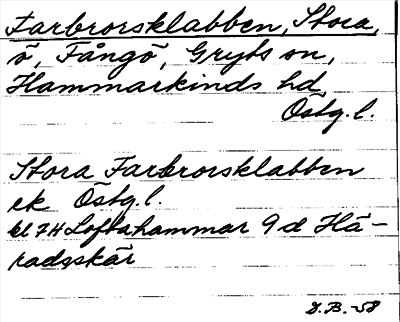 Farbrorsklabben, Stora,
ö, Fångö, Gryts sn,
Hammarkinds hd,
Östg.l.
Stora Farbrorsklabben
ek Östg.l.
bl 7H Loftahammar 9d Hä-
radsskär
D.B.-58